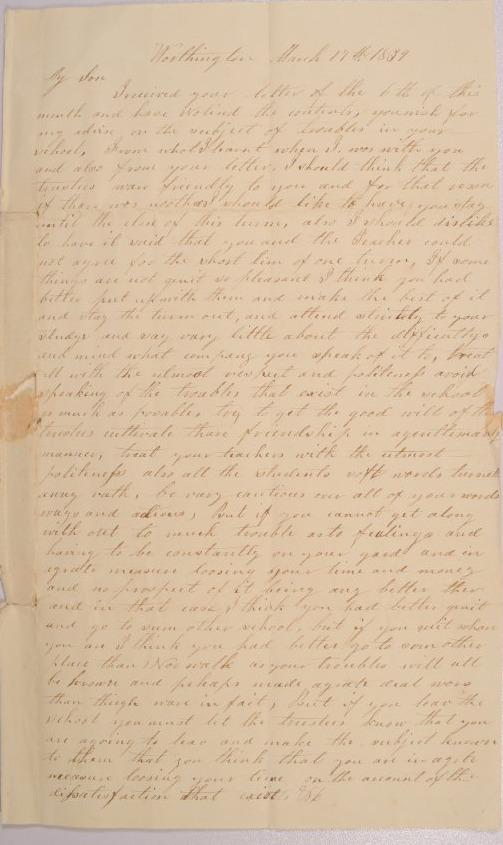 Worthington March 17th 1839
My Son
I received your letter of the 6th of this
month and have notised the contents, you wish for
my advise on the subject of troables in your
school, From what I learnt when I was with you
and also from your letter, I should think that the
trustees ware friendly to you and for that reson
if thare was no other should like to have you stay
until the close of this turm, also I should dislike
to have it said that you and the Teacher could
not agree for the short time of one turm, If some
things are not quit so pleasant I think you had
better put up with them and make the best of it
and stay the turm out, and attend strictly to your
studys and say vary little about the difficultys
and mind what company you speak of it to, treat
all with the utmost respect and politeness avoid
speaking of the troables that exist in the school
as much as posable, try to get the good will of the
trustees cultivate thare friendship in a gentlemanly
manner, treat your teachers with the utmost
politeness also all the students soft words turneth
away rath, be vary cautious over all of your words
ways and actions, But if you cannot get along
with out to much trouble as to fealings and
having to be constantly on your gard and in
a grate measure loosing your time and money
and no prospect of it being any better then
and in that case I think you had better quit
and go to sum other school, but if you quit whare
you are I think you had better go to som other
place than Norwalk as your troubles will all
be known and perhaps made a grate deal wors
than though ware in fact, But if you leav the
school you must let the trustees know that you
are agoing to leav and make the subject known
to them that you think that you are in a grate
measure loosing your time on the account of the
dissatisfaction that exist,